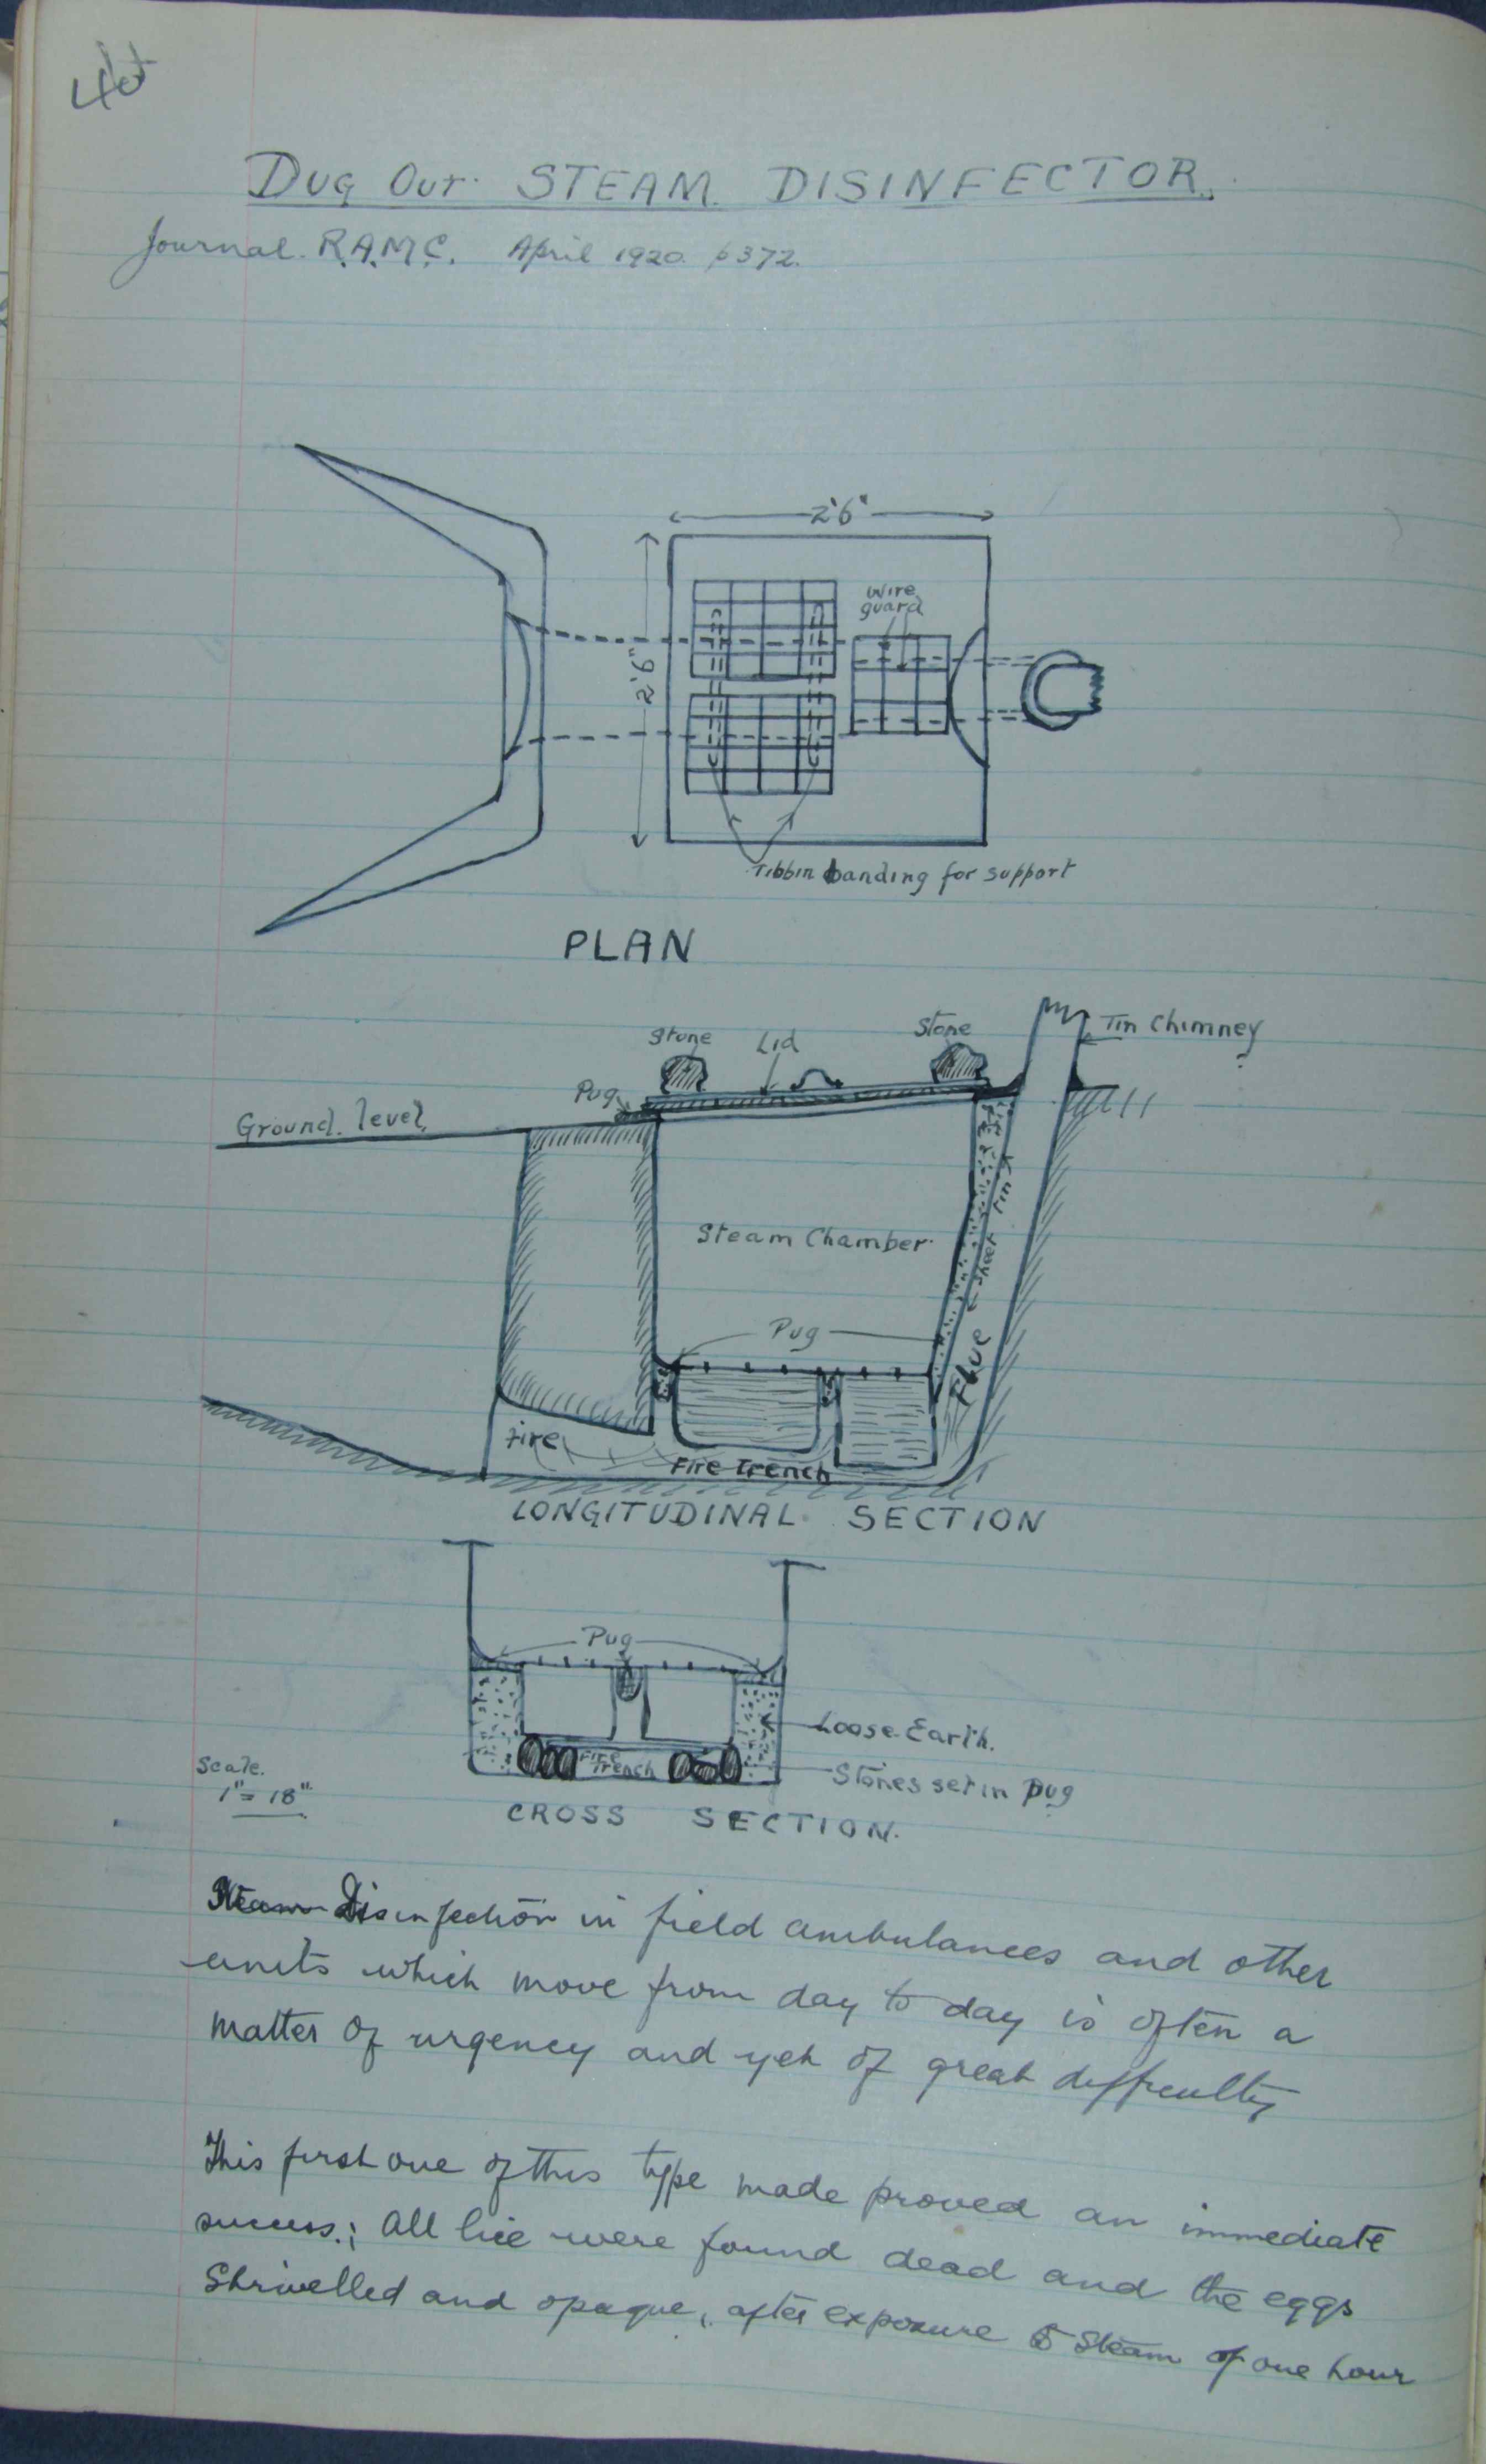 Dug Out. STEAM. DISINFECTOR.
Journal. R.A.M.C. April 1920. p372.
2'6"
wire
guard
2'.6"
Ribbin banding for support
PLAN
Stone
Lid
Stone
Tin Chimney
Pug
Ground. level.
Steam Chamber.
Sheet Tin
Pug
Flue
Fire
Fire Trench
LONGITUDINAL. SECTION
Pug
Loose. Earth.
Fire
Trench
Stones set in pug
Scale.
1" = 18"
CROSS SECTION.
Steam Disinfection in field ambulances and other
units which move from day to day is often a
matter of urgency and yet of great difficulty
This first one of this type made proved an immediate
success.; All lice were found dead and the eggs
Shrivelled and opaque, after exposure to Steam of one hour